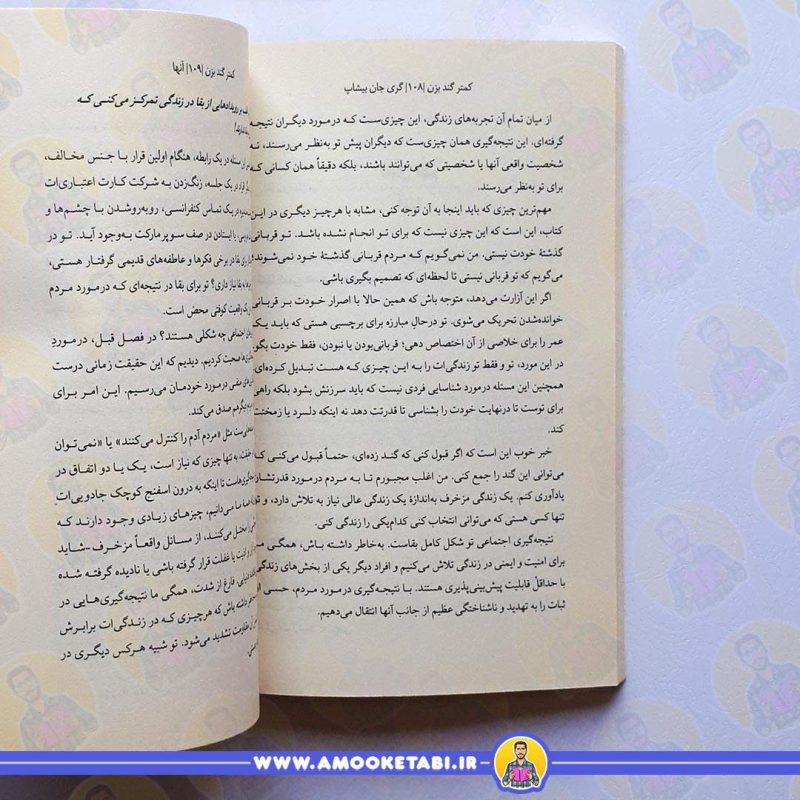 کمتر گند بزن |۱۰۸| گری جان بیشاپ
از میان تمام آن تجربه‌های زندگی، این چیزی‌ست که درمورد دیگران نتیجه
گرفته‌ای. این نتیجه‌گیری همان چیزی‌ست که دیگران پیش تو به‌نظر می‌رسند، نه
شخصیت واقعی آنها یا شخصیتی که می‌توانند باشند، بلکه دقیقاً همان کسانی که
برای تو به‌نظر می‌رسند.
مهم‌ترین چیزی که باید اینجا به آن توجه کنی، مشابه با هرچیز دیگری در این
کتاب، این است که این چیزی نیست که برای تو انجام نشده باشد. تو قربانی
گذشتهٔ خودت نیستی. من نمی‌گویم که مردم قربانی گذشتهٔ خود نمی‌شوند؛
می‌گویم که تو قربانی نیستی تا لحظه‌ای که تصمیم بگیری باشی.
اگر این آزارت می‌دهد، متوجه باش که همین حالا با اصرار خودت بر قربانی
خوانده‌شدن تحریک می‌شوی. تو درحالِ مبارزه برای برچسبی هستی که باید یک
عمر را برای خلاصی از آن اختصاص دهی؛ قربانی‌بودن یا نبودن، فقط خودت بگو.
در این مورد، تو و فقط تو زندگی‌ات را به این چیزی که هست تبدیل کرده‌ای.
همچنین این مسئله درمورد شناسایی فردی نیست که باید سرزنش بشود بلکه راهی
برای توست تا درنهایت خودت را بشناسی تا قدرتت دهد نه اینکه دلسرد یا زمختت
کند.
خبر خوب این است که اگر قبول کنی که گند زده‌ای، حتماً قبول می‌کنی که
می‌توانی این گند را جمع کنی. من اغلب مجبورم تا به مردم درمورد قدرتشان
یادآوری کنم. یک زندگی مزخرف به‌اندازهٔ یک زندگی عالی نیاز به تلاش دارد، و تو
تنها کسی هستی که می‌توانی انتخاب کنی کدام‌یکی را زندگی کنی.
نتیجه‌گیری اجتماعی تو شکل کامل بقاست. به‌خاطر داشته باش، همگی
برای امنیت و ایمنی در زندگی تلاش می‌کنیم و افراد دیگر یکی از بخش‌های زندگی
با حداقلِ قابلیت پیش‌بینی‌پذیری هستند. با نتیجه‌گیری درمورد مردم، حسی
ثبات را به تهدید و ناشناختگی عظیم از جانب آنها انتقال می‌دهیم.
کمتر گند بزن |۱۰۹| آنها
رویدادهایی از بقا در زندگی تمرکز می‌کنی که
مسئله در یک رابطه، هنگام اولین قرار با جنس مخالف،
در یک جلسه، زنگ‌زدن به شرکت کارت اعتباری‌ات
در یک تماس کنفرانسی، روبه‌روشدن با چشم‌ها و
یا ایستادن در صف سوپرمارکت به‌وجود آید. تو در
بقا در برخی فکرها و عاطفه‌های قدیمی گرفتار هستی،
به بقا نیاز داری؟ تو برای بقا در نتیجه‌ای که درمورد مردم
یک واقعیت کوفتی محض است.
اجتماعی چه شکلی هستند؟ در فصل قبل، درموردِ
صحبت کردیم. دیدیم که این حقیقت زمانی درست
منفی درمورد خودمان می‌رسیم. این امر برای
دیگر هم صدق می‌کند.
مثل «مردم آدم را کنترل می‌کنند» یا «نمی‌توان
تنها چیزی که نیاز است، یک یا دو اتفاق در
تا اینکه به درون اسفنج کوچک جادویی‌ات
می‌دانیم، چیزهای زیادی وجود دارند که
مختل می‌کنند، از مسائل واقعاً مزخرف -شاید
یا غفلت قرار گرفته باشی یا نادیده گرفته شده
فارغ از شدت، همگی ما نتیجه‌گیری‌هایی در
داشته باش که هرچیزی که در زندگی‌ات برابرش
مقاومت تشدید می‌شود. تو شبیه هرکس دیگری در
WWW.AMOOKETABI.IR